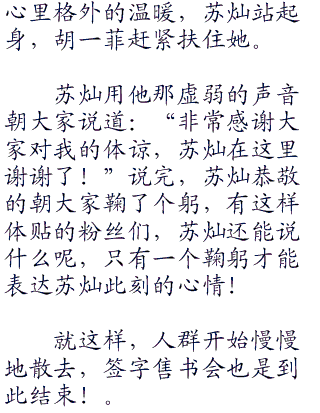 心里格外的温暖，苏灿站起
身，胡一菲赶紧扶住她。
苏灿用他那虚弱的声音
朝大家说道：“非常感谢大
家对我的体谅，苏灿在这里
谢谢了！”说完，苏灿恭敬
的朝大家鞠了个躬，有这样
体贴的粉丝们，苏灿还能说
什么呢，只有一个鞠躬才能
表达苏灿此刻的心情！
就这样，人群开始慢慢
地散去，签字售书会也是到
此结束！。